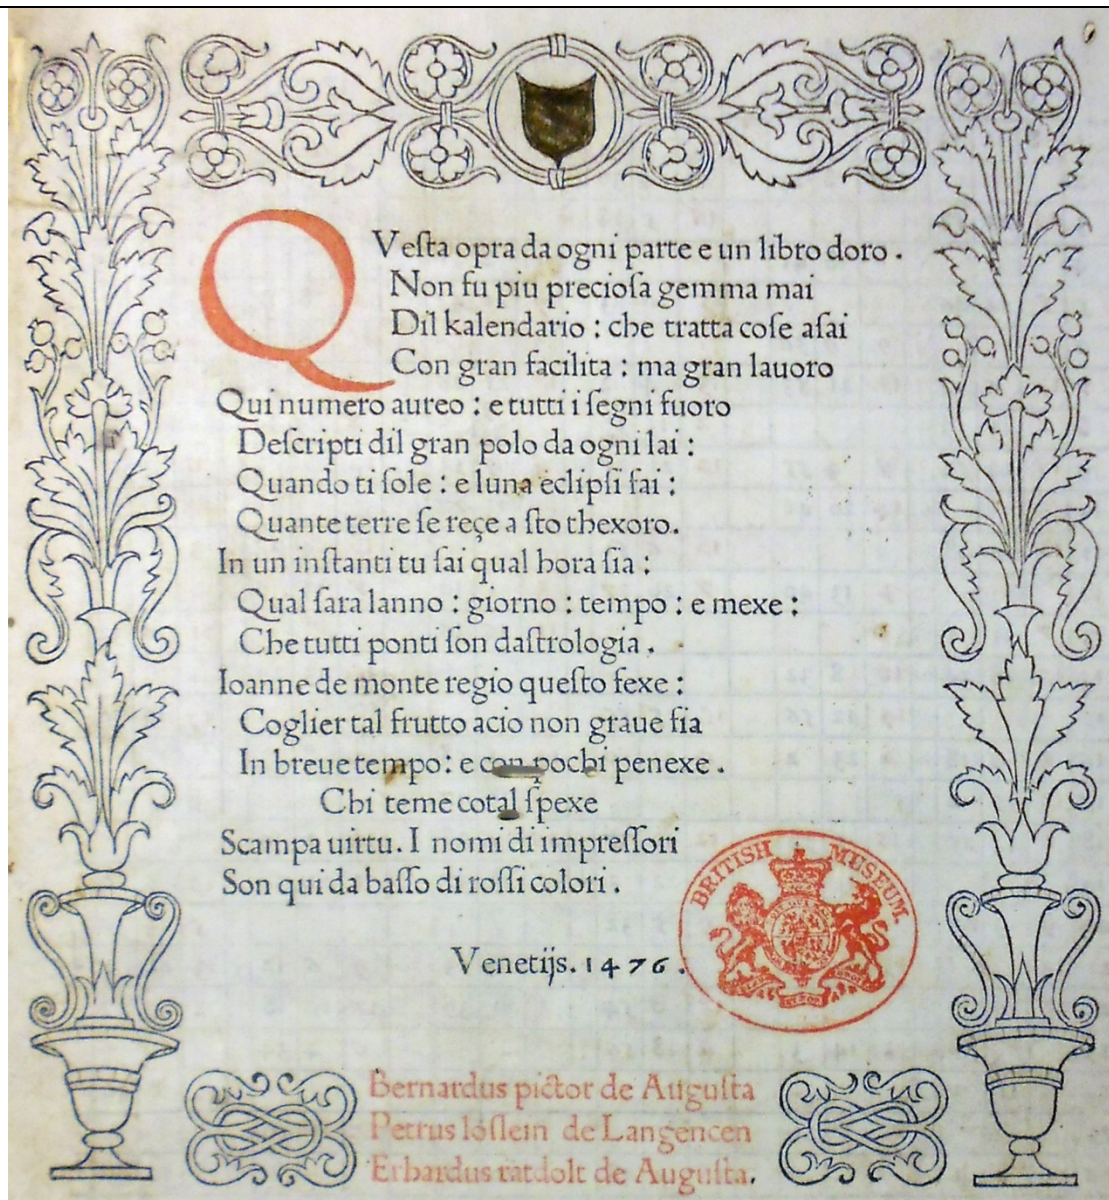 QVeſta opra da ogni parte e un libro doro.
Non fu piu precioſa gemma mai
Dil kalendario : che tratta coſe aſai
Con gran facilita : ma gran lauoro
Qui numero aureo : e tutti i ſegni fuoro
Deſcripti dil gran polo da ogni lai :
Quando ti ſole : e luna eclipſi fai :
Quante terre ſe reçe a ſto thexoro.
In un inſtanti tu ſai qual hora ſia :
Qual ſara lanno : giorno : tempo : e mexe :
Che tutti ponti ſon daſtrologia .
Ioanne de monte regio queſto fexe :
Coglier tal frutto acio non graue ſia
In breue tempo : e con pochi penexe .
Chi teme cotal ſpexe
Scampa uirtu. I nomi di impreſſori
Son qui da baſſo di roſſi colori .
BRITISH MUSEUM
Venetijs. 1476 .
Bernardus pictor de Auguſta
Petrus löſlein de Langencen
Erhardus ratdolt de Auguſta.